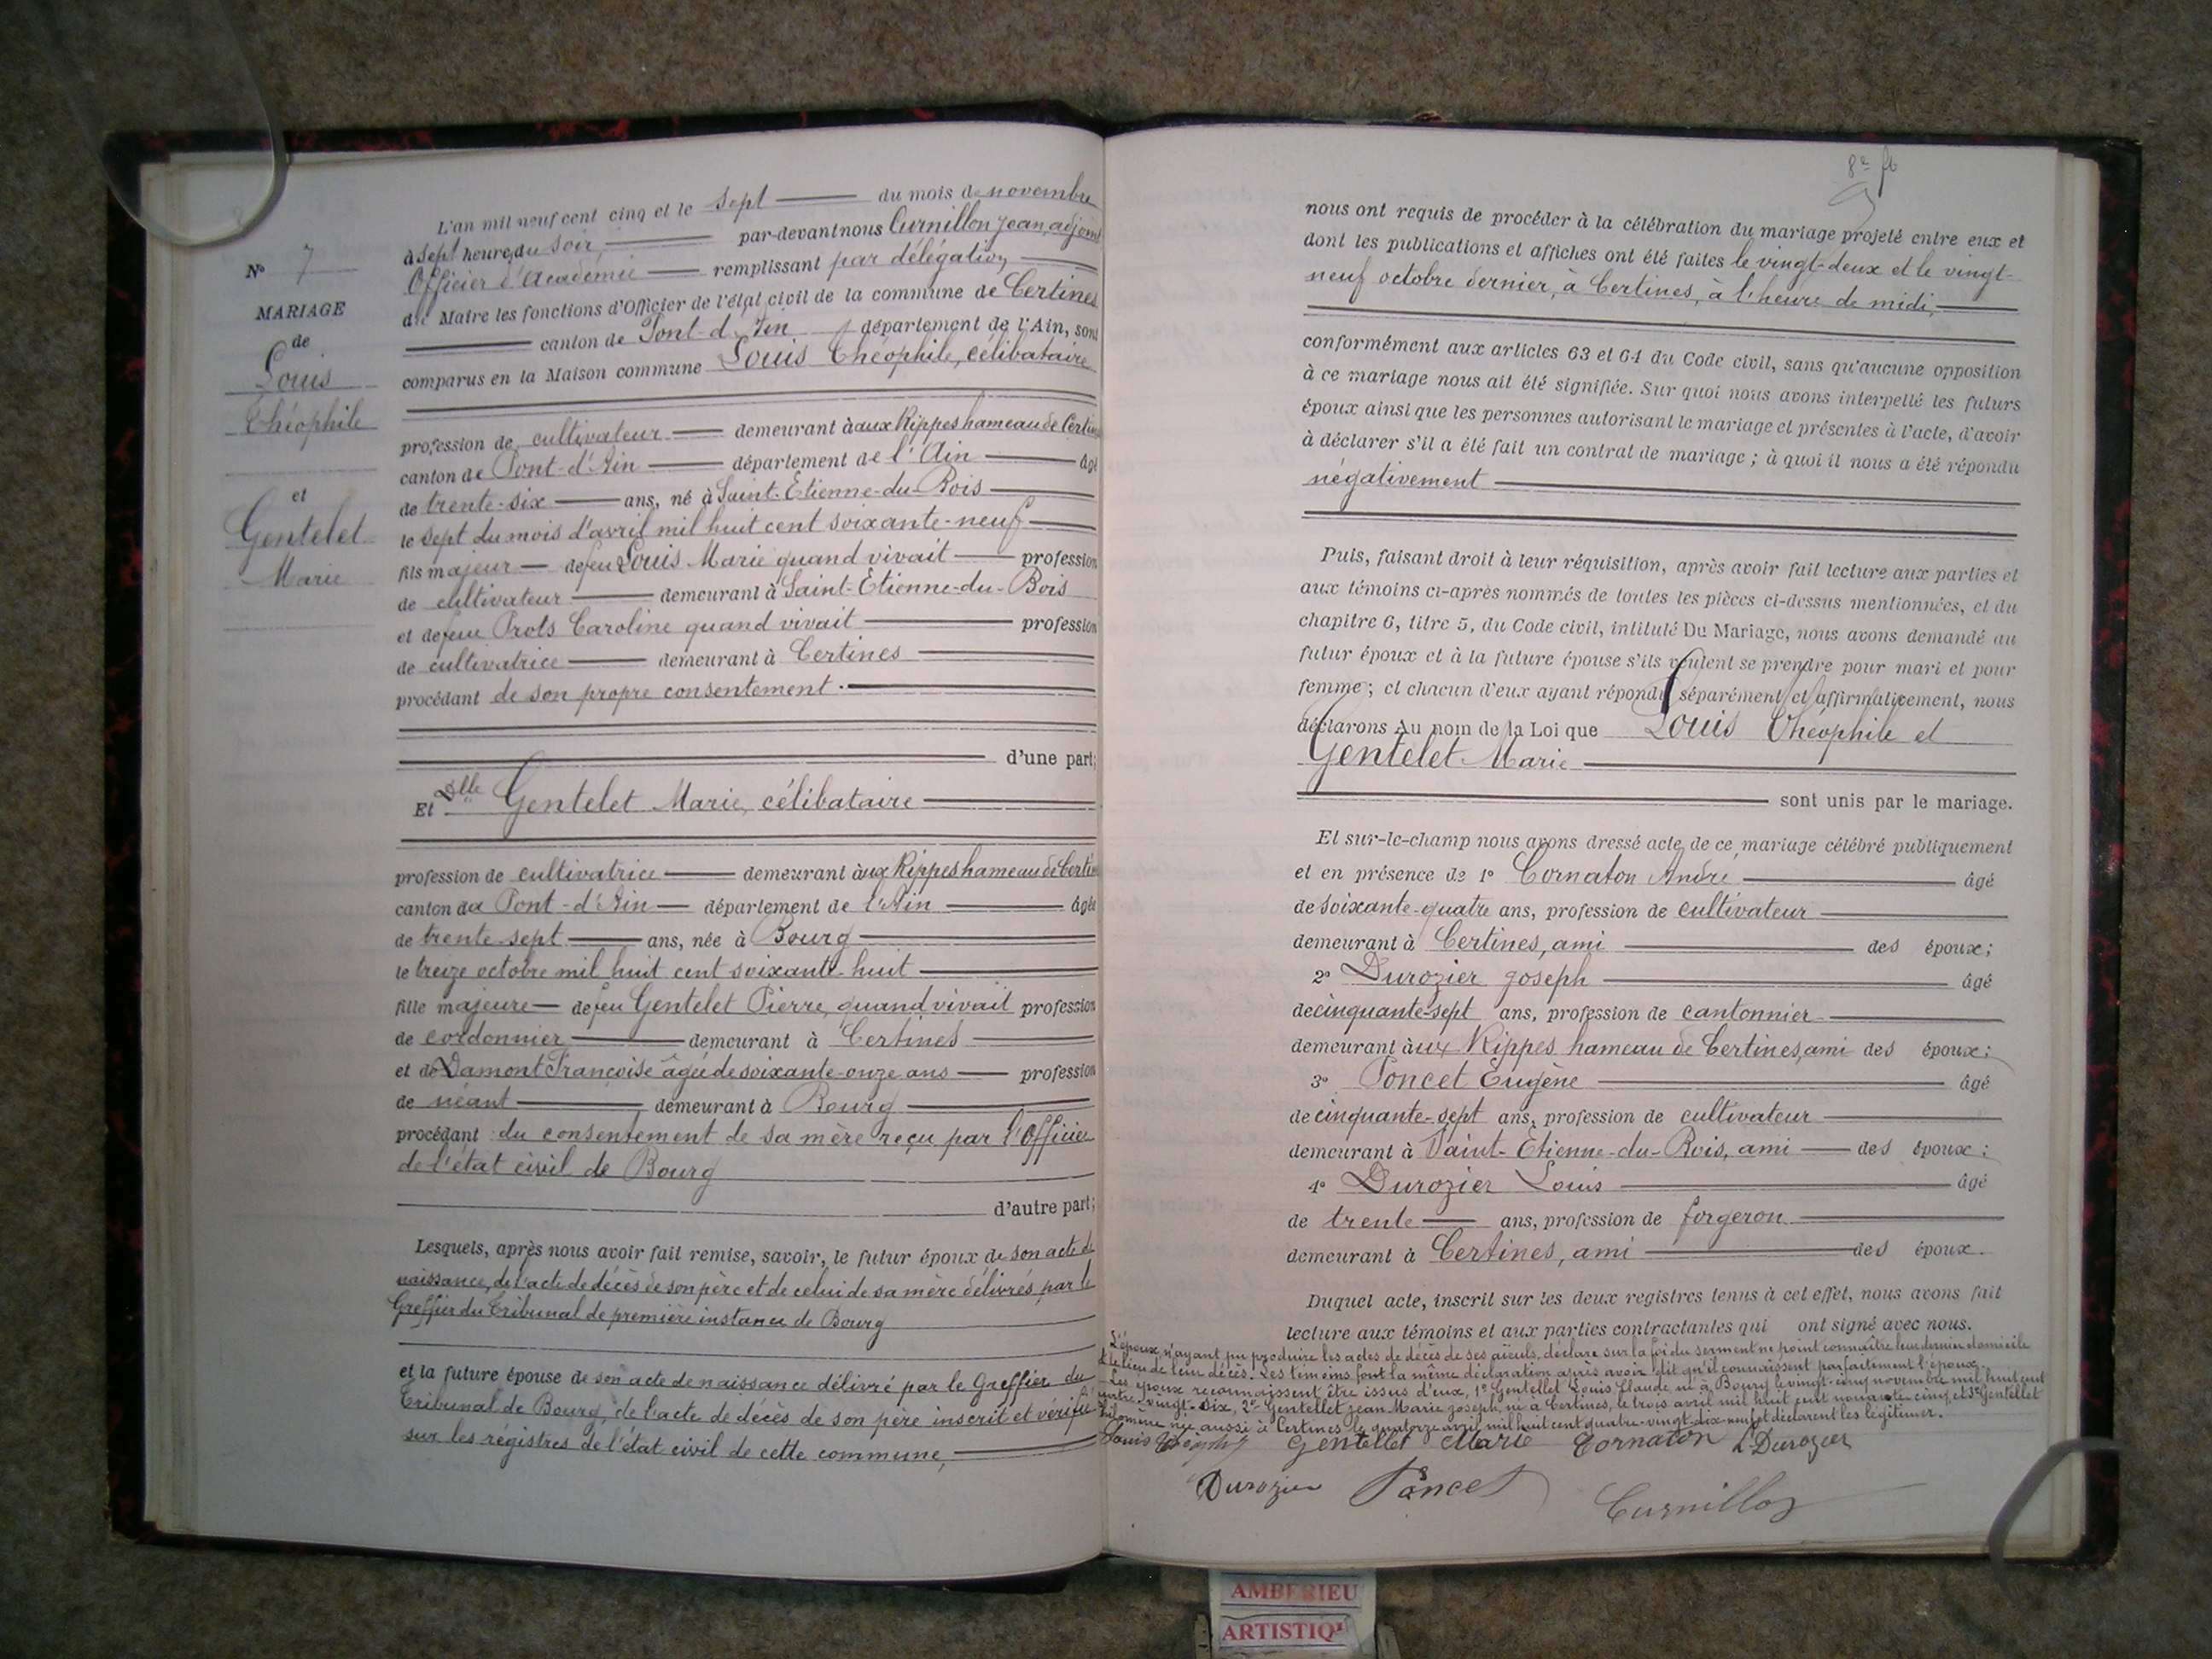 N° 7
MARIAGE
de
Louis
Théophile
et
Gentelet
Marie
L'an mil neuf cent cinq et le sept du mois de novembre
à sept heures du soir, par-devant nous Curnillon Jean, adjoint
Officier d'Académie remplissant par délégation
du Maire les fonctions d'Officier de l'état civil de la commune de Certines
canton de Pont-d'Ain département de l'Ain, sont
comparus en la Maison commune Louis Théophile, célibataire
profession de cultivateur demeurant à aux Rippes hameau de Certines
canton de Pont-d'Ain département de l'Ain âgé
de trente-six ans, né à Saint-Etienne-du-Bois
le sept du mois d'avril mil huit cent soixante-neuf
fils majeur de feu Louis Marie quand vivait profession
de cultivateur demeurant à Saint-Etienne-du-Bois
et de feue Prots Caroline quand vivait profession
de cultivatrice demeurant à Certines
procédant de son propre consentement.
d'une part;
Et Dlle Gentelet Marie, célibataire
profession de cultivatrice demeurant à ux Rippes hameau de Certines
canton de Pont-d'Ain département de l'Ain âgée
de trente-sept ans, née à Bourg
le treize octobre mil huit cent soixante-huit
fille majeure de feu Gentelet Pierre, quand vivait profession
de cordonnier demeurant à Certines
et de Damont Françoise âgée de soixante-onze ans profession
de néant demeurant à Bourg
procédant du consentement de sa mère reçu par l'Officier
de l'état civil de Bourg
d'autre part;
Lesquels, après nous avoir fait remise, savoir, le futur époux de son acte de
naissance, de l'acte de décès de son père et de celui de sa mère délivrés par le
Greffier du Tribunal de première instance de Bourg
et la future épouse de son acte de naissance délivré par le Greffier du
Tribunal de Bourg, de l'acte de décès de son père inscrit et vérifié
sur les régistres de l'état civil de cette commune,
8e
nous ont requis de procéder à la célébration du mariage projeté entre eux et
dont les publications et affiches ont été faites le vingt-deux et le vingt-
neuf octobre dernier, à Certines, à l'heure de midi,
conformément aux articles 63 et 64 du Code civil, sans qu'aucune opposition
à ce mariage nous ait été signifiée. Sur quoi nous avons interpellé les futurs
époux ainsi que les personnes autorisant le mariage et présentes à l'acte, d'avoir
à déclarer s'il a été fait un contrat de mariage; à quoi il nous a été répondu
négativement
Puis, faisant droit à leur réquisition, après avoir fait lecture aux parties et
aux témoins ci-après nommés de toutes les pièces ci-dessus mentionnées, et du
chapitre 6, titre 5, du Code civil, intitulé Du Mariage, nous avons demandé au
futur époux et à la future épouse s'ils veulent se prendre pour mari et pour
femme; et chacun d'eux ayant répondu séparément et affirmativement, nous
déclarons Au nom de la Loi que Louis Théophile et
Gentelet Marie
sont unis par le mariage.
Et sur-le-champ nous avons dressé acte de ce mariage célébré publiquement
et en présence de 1° Cornaton André âgé
de soixante-quatre ans, profession de cultivateur
demeurant à Certines, ami des époux;
2° Durozier Joseph âgé
de cinquante-sept ans, profession de cantonnier
demeurant à ux Rippes hameau de Certines, ami des époux;
3° Poncet Eugène âgé
de cinquante-sept ans, profession de cultivateur
demeurant à Saint-Etienne-du-Bois, ami des époux;
4° Durozier Louis âgé
de trente ans, profession de forgeron
demeurant à Certines, ami des époux.
Duquel acte, inscrit sur les deux registres tenus à cet effet, nous avons fait
lecture aux témoins et aux parties contractantes qui ont signé avec nous.
L'époux n'ayant pu produire les actes de décès de ses aïeuls, déclare sur la foi du serment ne point connaître leur dernier domicile
et le lieu de leur décès. Les témoins font la même déclaration après avoir dit qu'il connaissent parfaitement l'époux.
Les époux reconnaissent être issus d'eux, 1° Gentellet Louis Claude né à Bourg le vingt-cinq novembre mil huit cent
quatre-vingt-dix, 2° Gentellet Jean Marie Joseph, né à Certines, le trois avril mil huit cent nonante-cinq, et 3° Gentellet
Philomène née aussi à Certines le quatorze avril mil huit cent quatre-vingt-dix-neuf et déclarent les légitimer.
Louis Gentellet Marie Cornaton L Durozier
Durozier Poncet Curnillon
AMBERIEU
ARTISTIQ